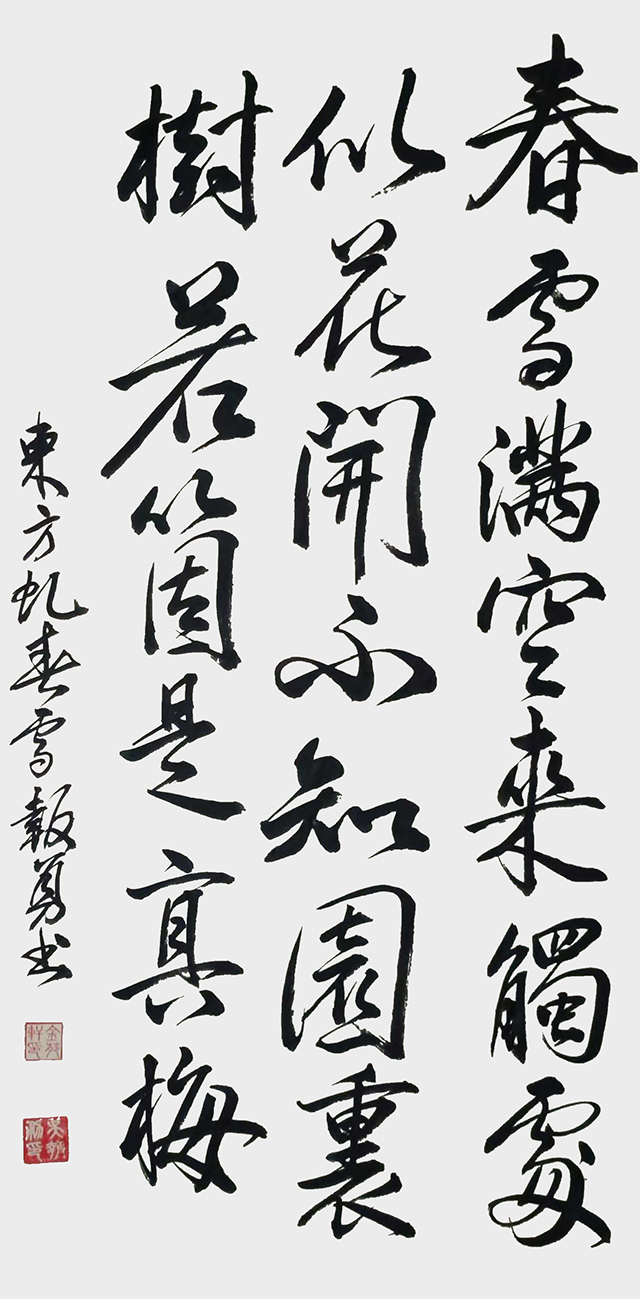 春雪滿空來觸處
似花開不知園裏
樹若箇是真梅
東方虬春雪勇书